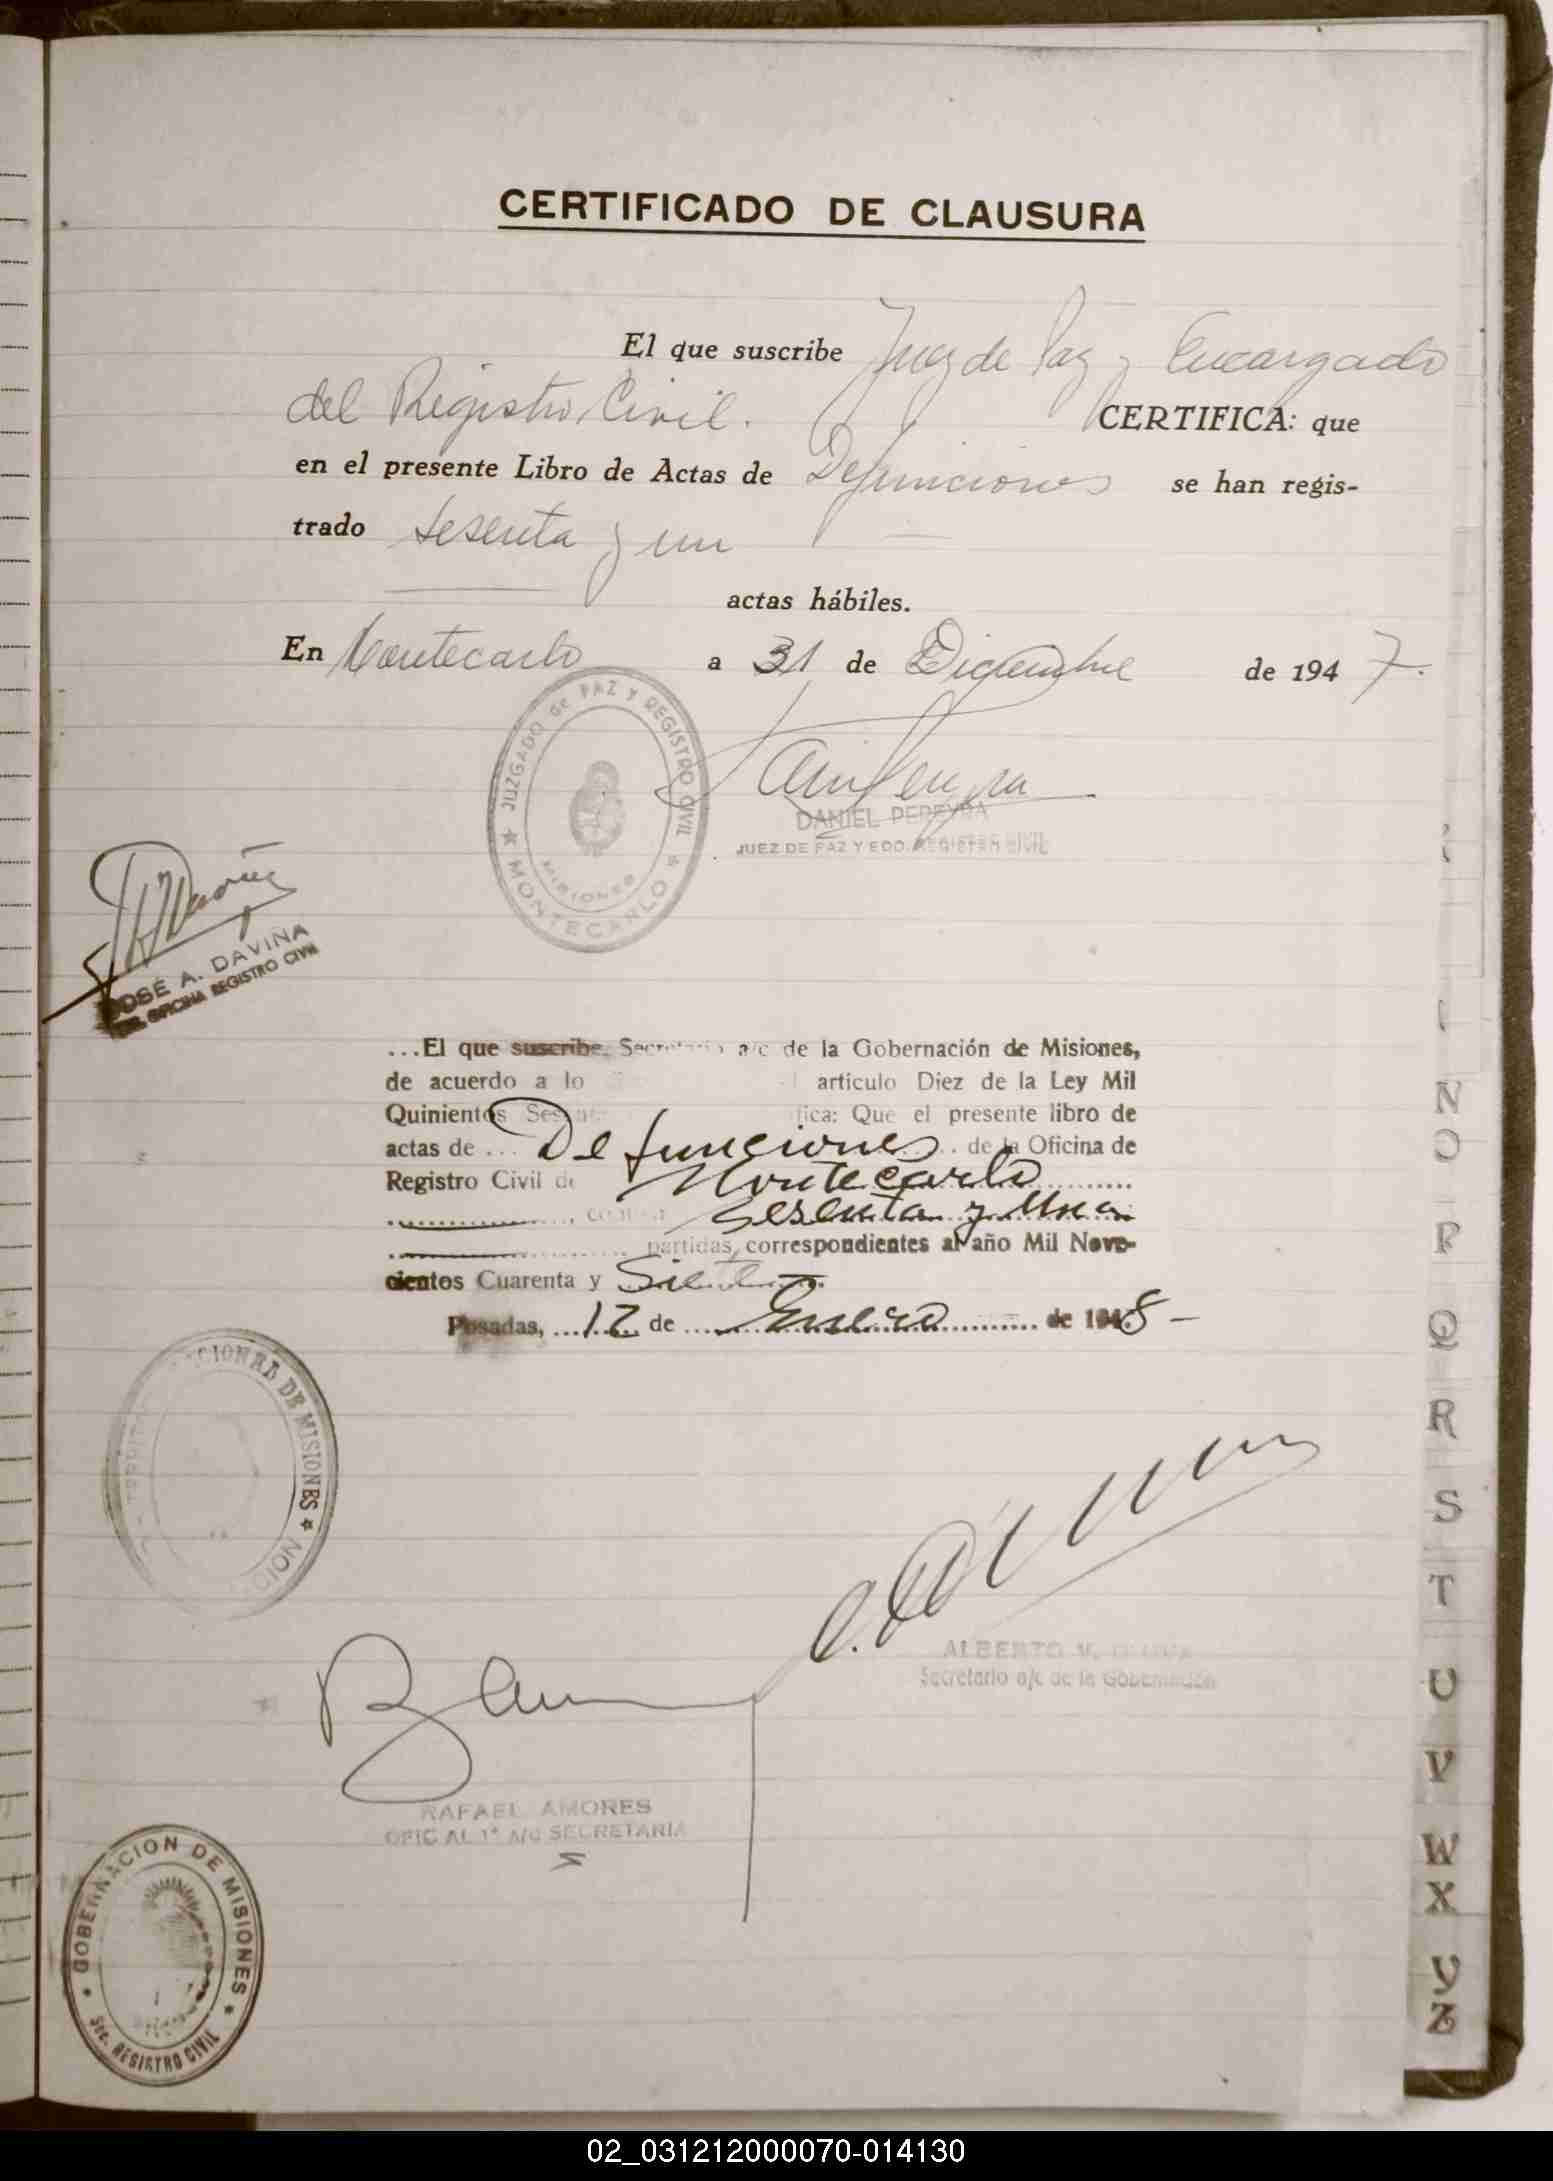 CERTIFICADO DE CLAUSURA
El que suscribe Juez de Paz y Encargado
del Registro Civil. CERTIFICA: que
en el presente Libro de Actas de Defunciones se han regis-
trado sesenta y un
actas hábiles.
En Montecarlo a 31 de Diciembre de 1947.
JUZGADO de PAZ Y REGISTRO CIVIL
MISIONES
MONTECARLO
DANIEL PEREYRA
JUEZ DE PAZ Y EDO. REGISTRO CIVIL
JOSÉ A. DAVIÑA
OFICINA REGISTRO CIVIL
...El que suscribe, Secretario a/c de la Gobernación de Misiones,
de acuerdo a lo artículo Diez de la Ley Mil
Quinientos Ses que el presente libro de
actas de Defunciones de la Oficina de
Registro Civil de Montecarlo
sesenta y una
partidas, correspondientes al año Mil Nove-
cientos Cuarenta y Siete
Posadas, 12 de Enero de 1948-
DE MISIONES
ALBERTO V.
Secretario a/c de la Gobernación
RAFAEL AMORES
OFICIAL 1° A/C SECRETARIA
GOBERNACION DE MISIONES
Sec. REGISTRO CIVIL
N
O
P
Q
R
S
T
U
V
W
X
Y
Z
02_031212000070-014130